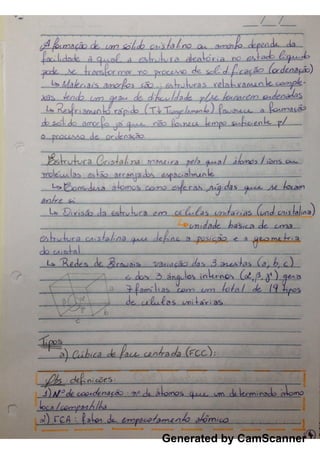 A formação de um sólido cristalino ou amorfo depende da
facilidade à qual a estrutura aleatória no estado líquido
pode se transformar no processo de solidificação (ordenação)
↳ Materiais amorfos são estruturas relativamente comple-
xas tendo um grau de dificuldade p/ se tornarem ordenadas
↳ Resfriamento rápido favorece a formação
do sólido amorfo já que não fornece tempo suficiente p/
o processo de ordenação.
Estrutura Cristalina maneira pela qual átomos/íons ou
moléculas estão arranjados espacialmente
↳ Considera átomos como esferas rígidas que se tocam
entre si
↳ Divisão da estrutura em células unitárias (und cristalina)
↳ unidade básica de uma
estrutura cristalina que define a posição e a geometria
do cristal
↳ Redes de Bravais: variação das 3 arestas (a, b, c)
e dos 3 ângulos internos (α, β, γ) gera
7 famílias com um total de 14 tipos
de células unitárias
a
b
c
Tipos
a) Cúbica de face centrada (FCC):
Obs: definições:
1) Nº de coordenação: nº de átomos que um determinado átomo
toca/compartilha
2) FEA: fator de empacotamento atômico
Generated by CamScanner